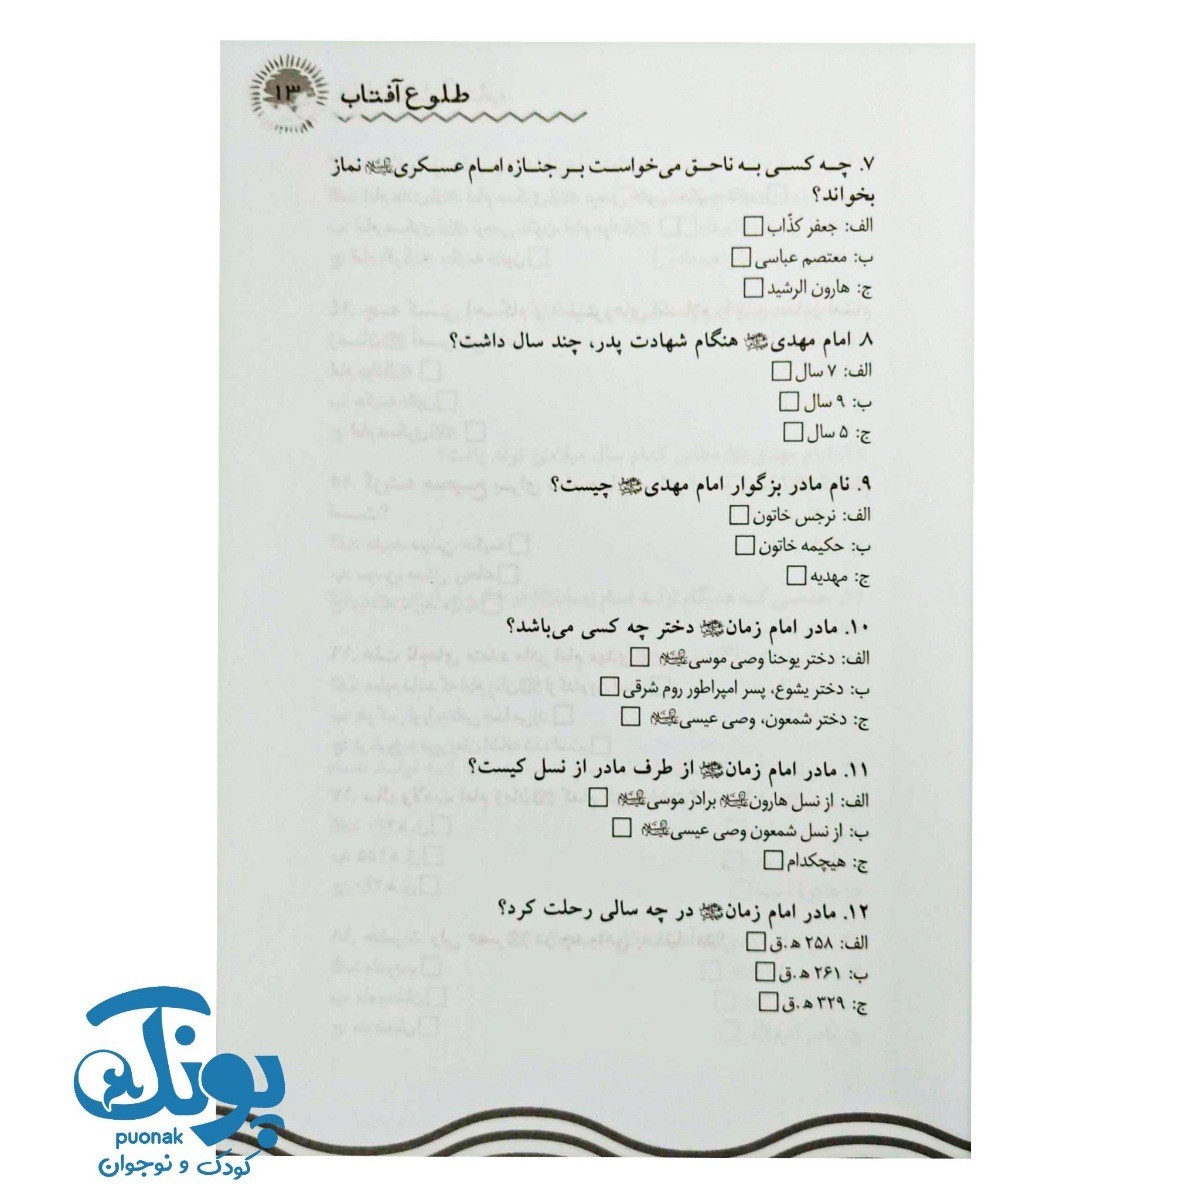 ۱۳
طلوع آفتاب
۷. چه کسی به ناحق می‌خواست بر جنازه امام عسکری نماز
بخواند؟
الف: جعفر کذّاب
ب: معتصم عباسی
ج: هارون الرشید
۸. امام مهدی هنگام شهادت پدر، چند سال داشت؟
الف: ۷ سال
ب: ۹ سال
ج: ۵ سال
۹. نام مادر بزگوار امام مهدی چیست؟
الف: نرجس خاتون
ب: حکیمه خاتون
ج: مهدیه
۱۰. مادر امام زمان دختر چه کسی می‌باشد؟
الف: دختر یوحنا وصی موسی
ب: دختر یشوع، پسر امپراطور روم شرقی
ج: دختر شمعون، وصی عیسی
۱۱. مادر امام زمان از طرف مادر از نسل کیست؟
الف: از نسل هارون برادر موسی
ب: از نسل شمعون وصی عیسی
ج: هیچکدام
۱۲. مادر امام زمان در چه سالی رحلت کرد؟
الف: ۲۵۸ ه‍.ق
ب: ۲۶۱ ه‍.ق
ج: ۳۲۹ ه‍.ق
پونک
puonak
کودک و نوجوان